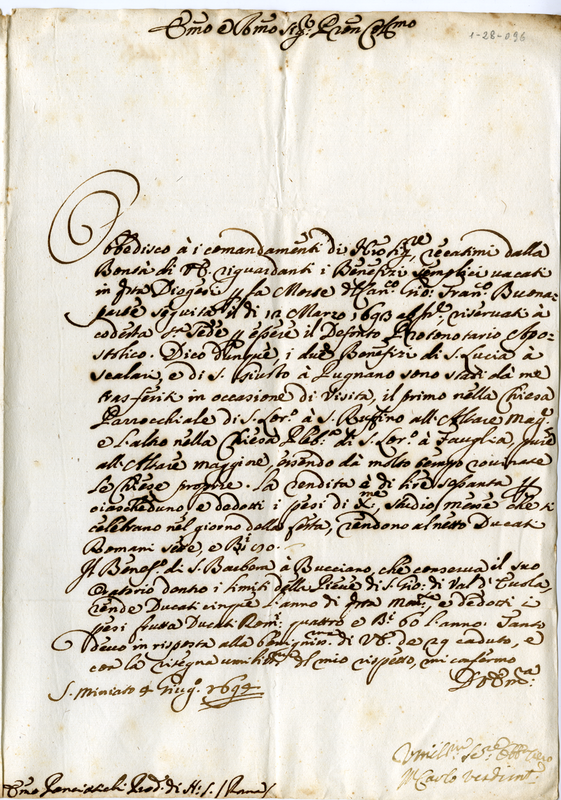 Em̃o e Rm̃o Sig. Pñ Col.mo
1-28-096
Obbedisco à i comandamenti di recatimi dalla
Bontà di V.E. riguardanti i Benefizi semplici vacati
in q̃ta Diogesi p la Morte del Can.co Gio: Fran.co Buona-
parte seguita il dì 12 Marzo 1693 riservati à
codesta S. Sede p essere il Defonto Protonotario Apo-
stolico. Dico dunque, i due Benefizi di S. Lucia à
Scalari, e di S. Giusto à Pugnano sono stati dà me
trasferiti in occasione di Visita, il primo nella Chiesa
Parrocchiale di S. Lor.o à S. Ruffino all'Altare Mag.e
e l'altro nella Chiesa Pleb.na di S. Lor.o à Fauglia, pure
all'Altare maggiore essendo dà molto tempo rovinate
le Chiese proprie. La rendita è di lire sepanta p
ciascheduno e dedotti i pesi di messe che si
celebrano nel giorno della festa, rendono al netto Ducati
Romani sette, e B.i 90.
Il Benef.o di S. Barbera à Bucciano, che conserva il suo
oratorio dentro i limiti della Pieve di S. Gio: di Val d'Evola,
rende Ducati cinque l'anno di q̃ta Mon.ta e dedotti i
pesi frutta Ducati Rom.i quattro e B.i 60 l'anno. Tanto
devo in risposta alla benignis.ma di V.E. de 29 caduto, e
con la rasegna umiliss.ma del mio rispetto, mi confermo
D.V.Em.a
S. Miniato 4 Giug.o 1694
Umil.mo Se.re Obb.mo
M Carlo
Em̃o Panciatichi Prod. di N. S. / Roma /